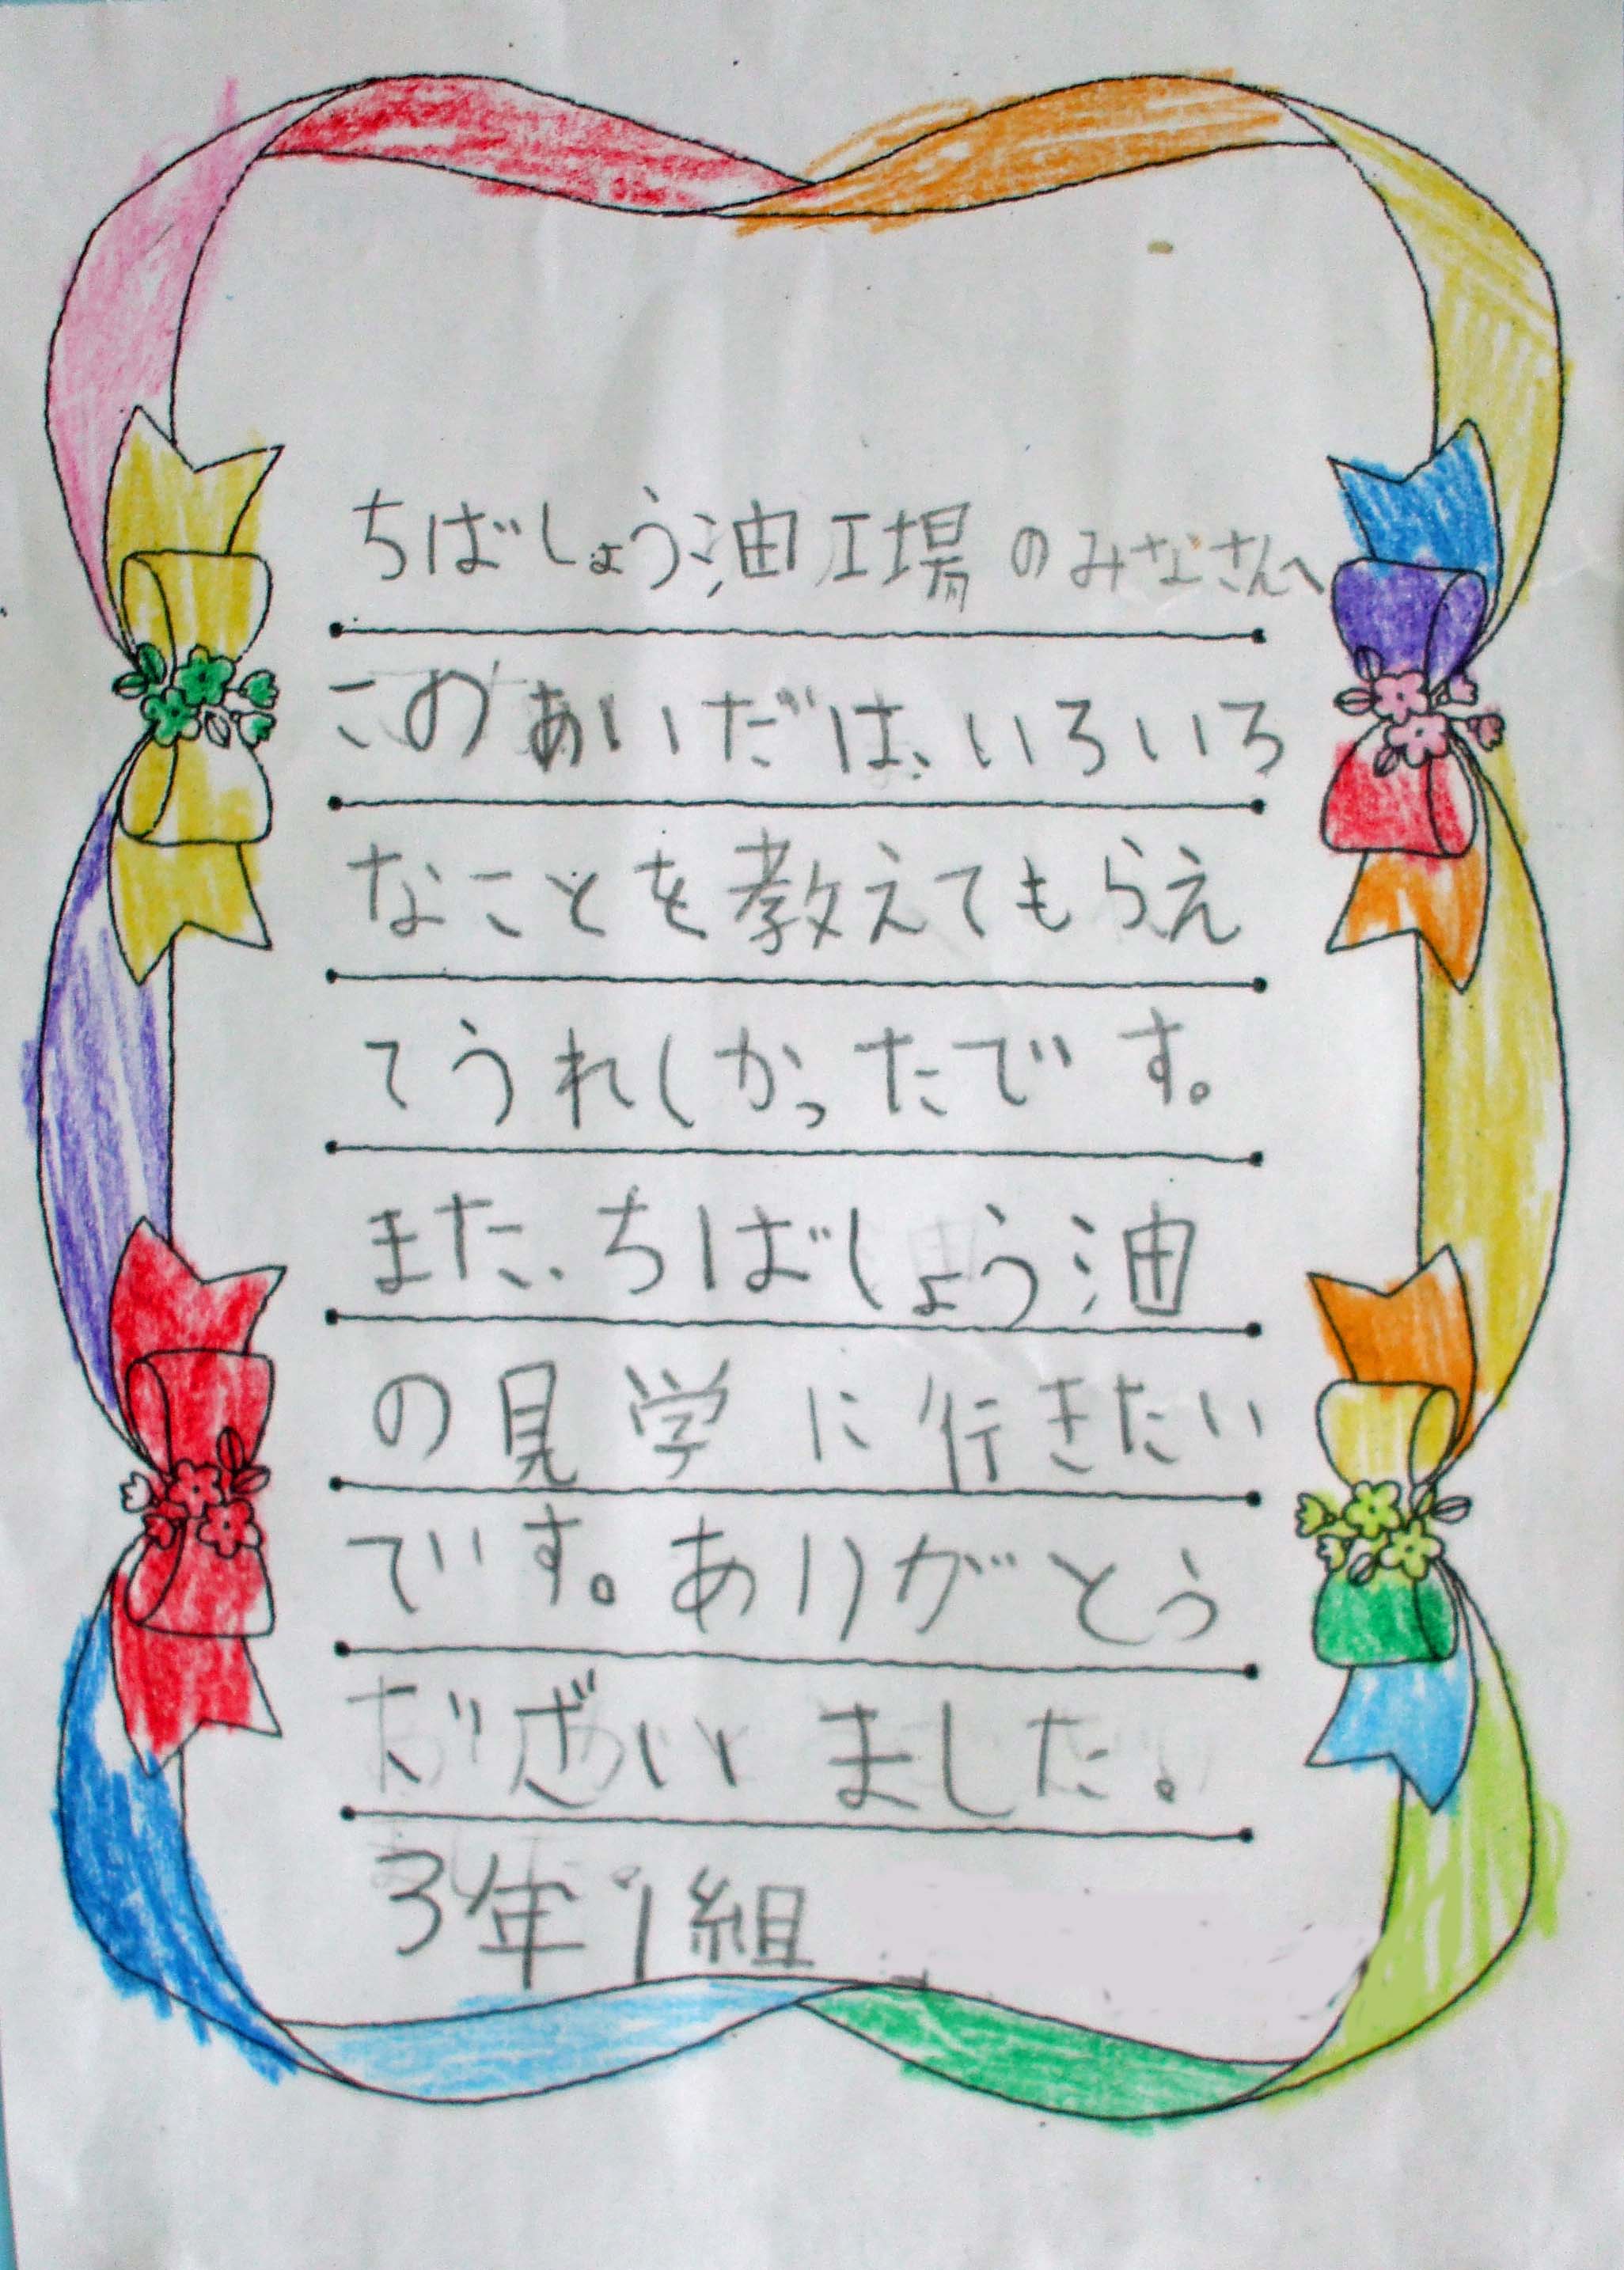 ちばしょう油工場のみなさんへ
このあいだは、いろいろ
なことを教えてもらえ
てうれしかったです。
また、ちばしょう油
の見学に行きたい
です。ありがとう
ございました。
3年1組